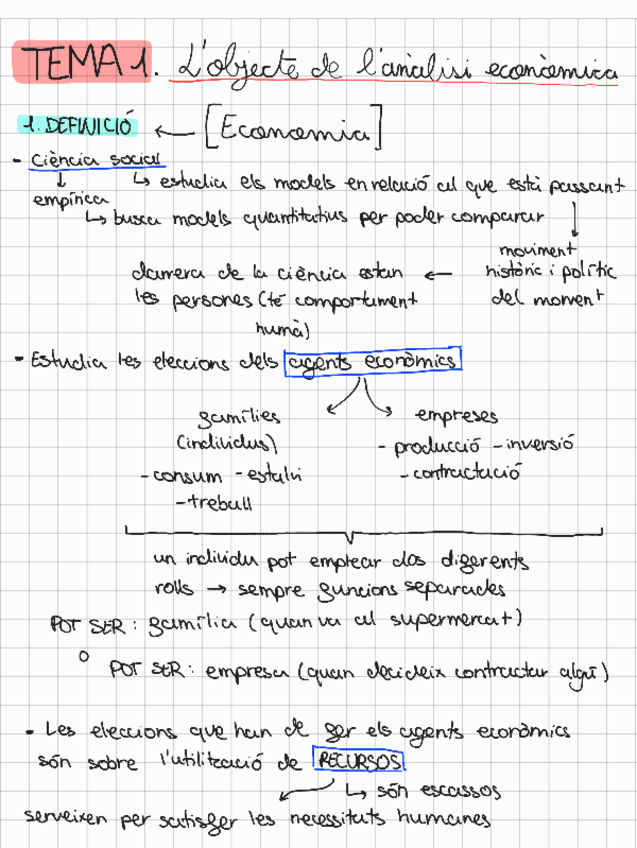 TEMA 1. L'objecte de l'anàlisi econòmica
1. DEFINICIÓ ← [Economia]
- Ciència social
↳ estudia els models en relació al que està passant
empírica
↳ busca models quantitatius per poder comparar
moviment
històric i polític
del moment
darrera de la ciència estan ←
les persones (té comportament
humà)
- Estudia les eleccions dels agents econòmics
famílies
(individus)
- consum - estalvi
- treball
empreses
- producció - inversió
- contractació
un individu pot emplear dos diferents
rolls → sempre funcions separades
POT SER: família (quan va al supermercat)
O
POT SER: empresa (quan decideix contractar algú)
- Les eleccions que han de fer els agents econòmics
són sobre l'utilització de RECURSOS
↳ són escassos
serveixen per satisfer les necessitats humanes